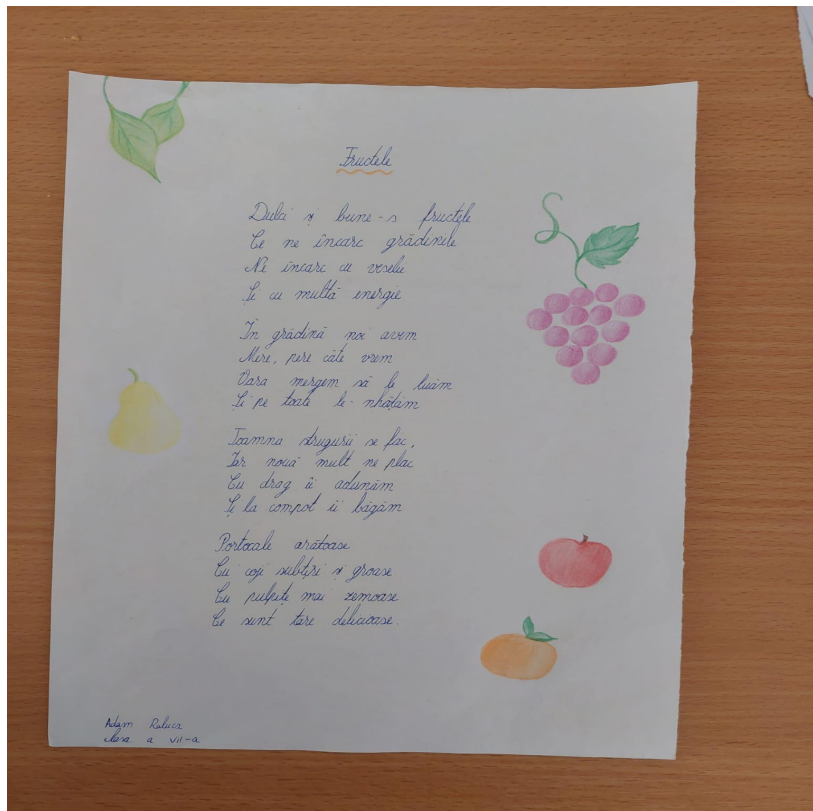 Fructele
Dulci și bune-s fructele
Ce ne încarc grădinile
Ne încarc cu veselie
Și cu multă energie
În grădină noi avem
Mere, pere câte vrem
Vara mergem să le luăm
Și pe toate le-nhățăm
Toamna strugurii se fac,
Iar nouă mult ne plac
Cu drag îi adunăm
Și la compot îi băgăm
Portocale arătoase
Cu coji subțiri și groase
Cu pulpițe mai zemoase
Ce sunt tare delicioase.
Adam Raluca
clasa a VII-a